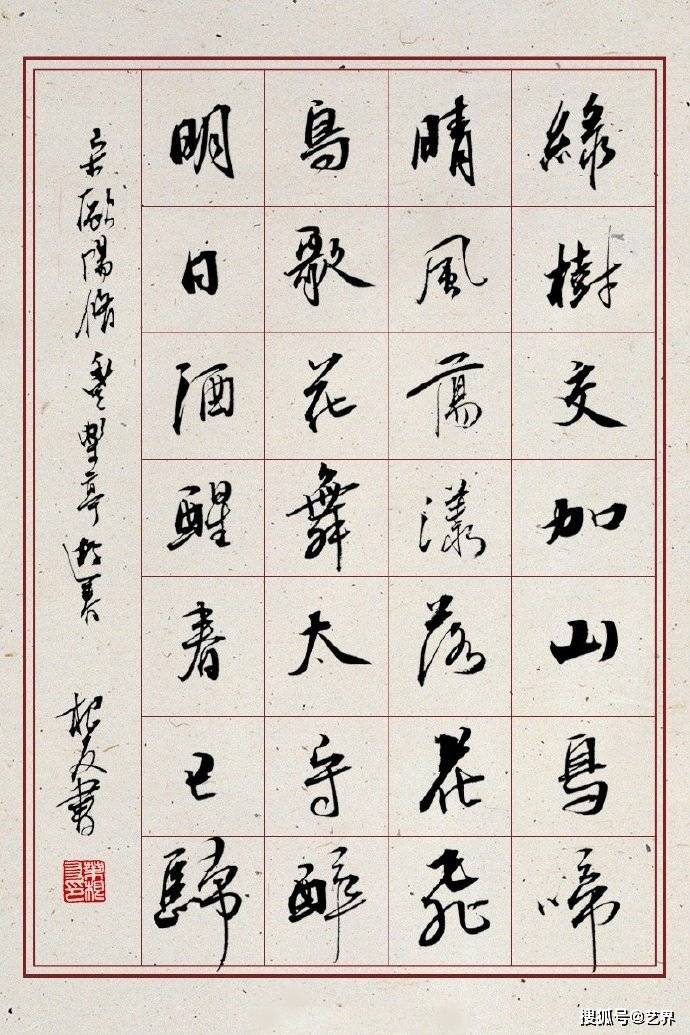 綠樹交加山鳥啼
晴風蕩漾落花飛
鳥歌花舞太守醉
明日酒醒春已歸
宋歐陽脩豐樂亭遊春 根友書
搜狐号@艺界